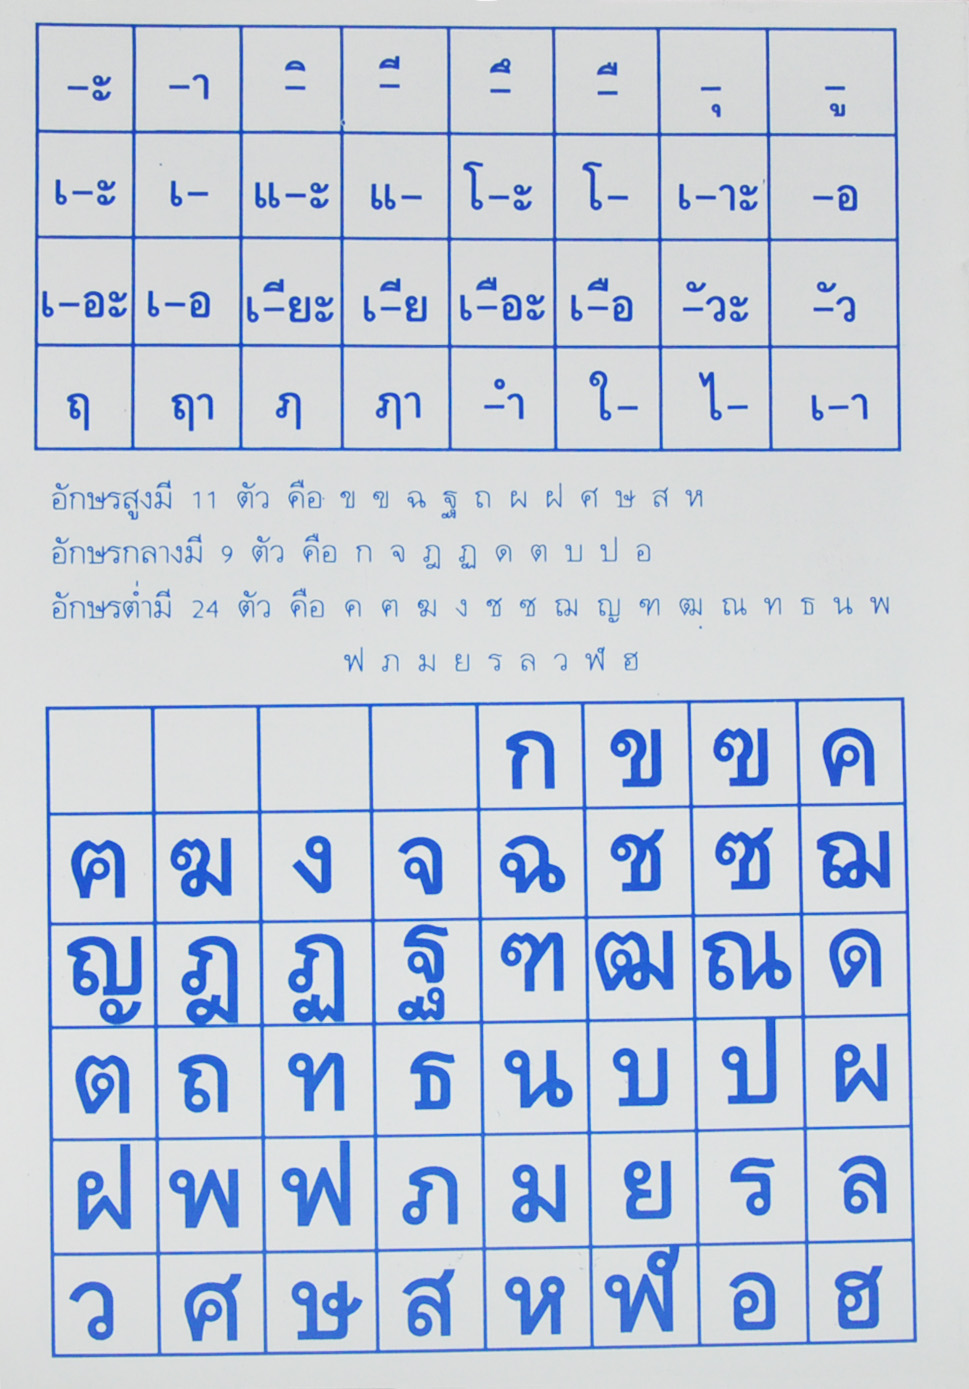 –ะ –า –ิ –ี –ึ –ื –ุ –ู
เ–ะ เ– แ–ะ แ– โ–ะ โ– เ–าะ –อ
เ–อะ เ–อ เ–ียะ เ–ีย เ–ือะ เ–ือ –ัวะ –ัว
ฤ ฤา ภ ภา –ำ ใ– ไ– เ–า
อักษรสูงมี 11 ตัว คือ ข ฃ ฉ ฐ ถ ผ ฝ ศ ษ ส ห
อักษรกลางมี 9 ตัว คือ ก จ ฎ ฏ ด ต บ ป อ
อักษรต่ำมี 24 ตัว คือ ค ฅ ฆ ง ช ซ ฌ ญ ฑ ฒ ณ ท ธ น พ
ฟ ภ ม ย ร ล ว ฬ ฮ
ก ข ฃ ค
ฅ ฆ ง จ ฉ ช ซ ฌ
ญ ฎ ฏ ฐ ฑ ฒ ณ ด
ต ถ ท ธ น บ ป ผ
ฝ พ ฟ ภ ม ย ร ล
ว ศ ษ ส ห ฬ อ ฮ